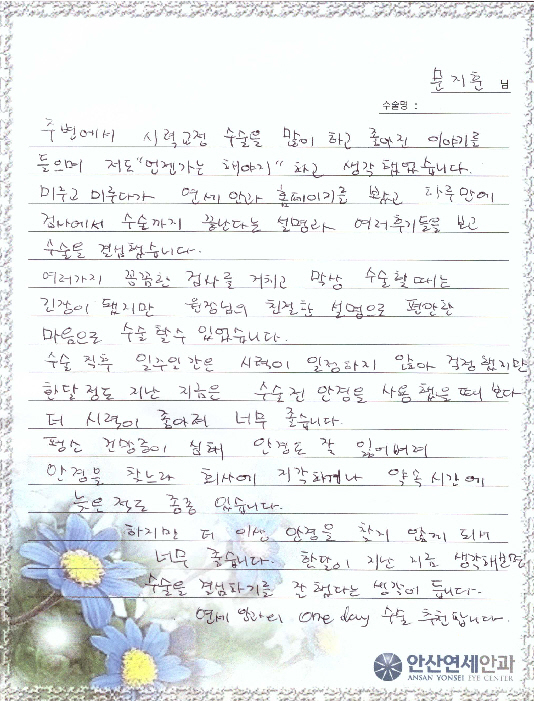 문지훈 님
수술명 :
주변에서 시력교정 수술을 많이 하고 좋아진 이야기를
들으며 저도 "언젠가는 해야지" 하고 생각했었습니다.
미루고 미루다가 연세안과 홈페이지를 보았고 하루만에
검사에서 수술까지 끝난다는 설명과 여러후기들을 보고
수술을 결심했습니다.
여러가지 꼼꼼한 검사를 거치고 막상 수술할때는
긴장이 됐지만 원장님의 친절한 설명으로 편안한
마음으로 수술 할수 있었습니다.
수술 직후 일주일간은 시력이 일정하지 않아 걱정했지만
한달 정도 지난 지금은 수술전 안경을 사용했을 때 보다
더 시력이 좋아져 너무 좋습니다.
평소 건망증이 심해 안경도 잘 잃어버려
안경을 찾느라 회사에 지각하거나 약속시간에
늦은적도 종종 있습니다.
하지만 더 이상 안경을 찾지 않게 되어
너무 좋습니다. 한달이 지난 지금 생각해보면
수술을 결심하기를 잔 했다는 생각이 듭니다.
연세안과의 one day 수술 추천합니다.
안산연세안과
ANSAN YONSEI EYE CENTER